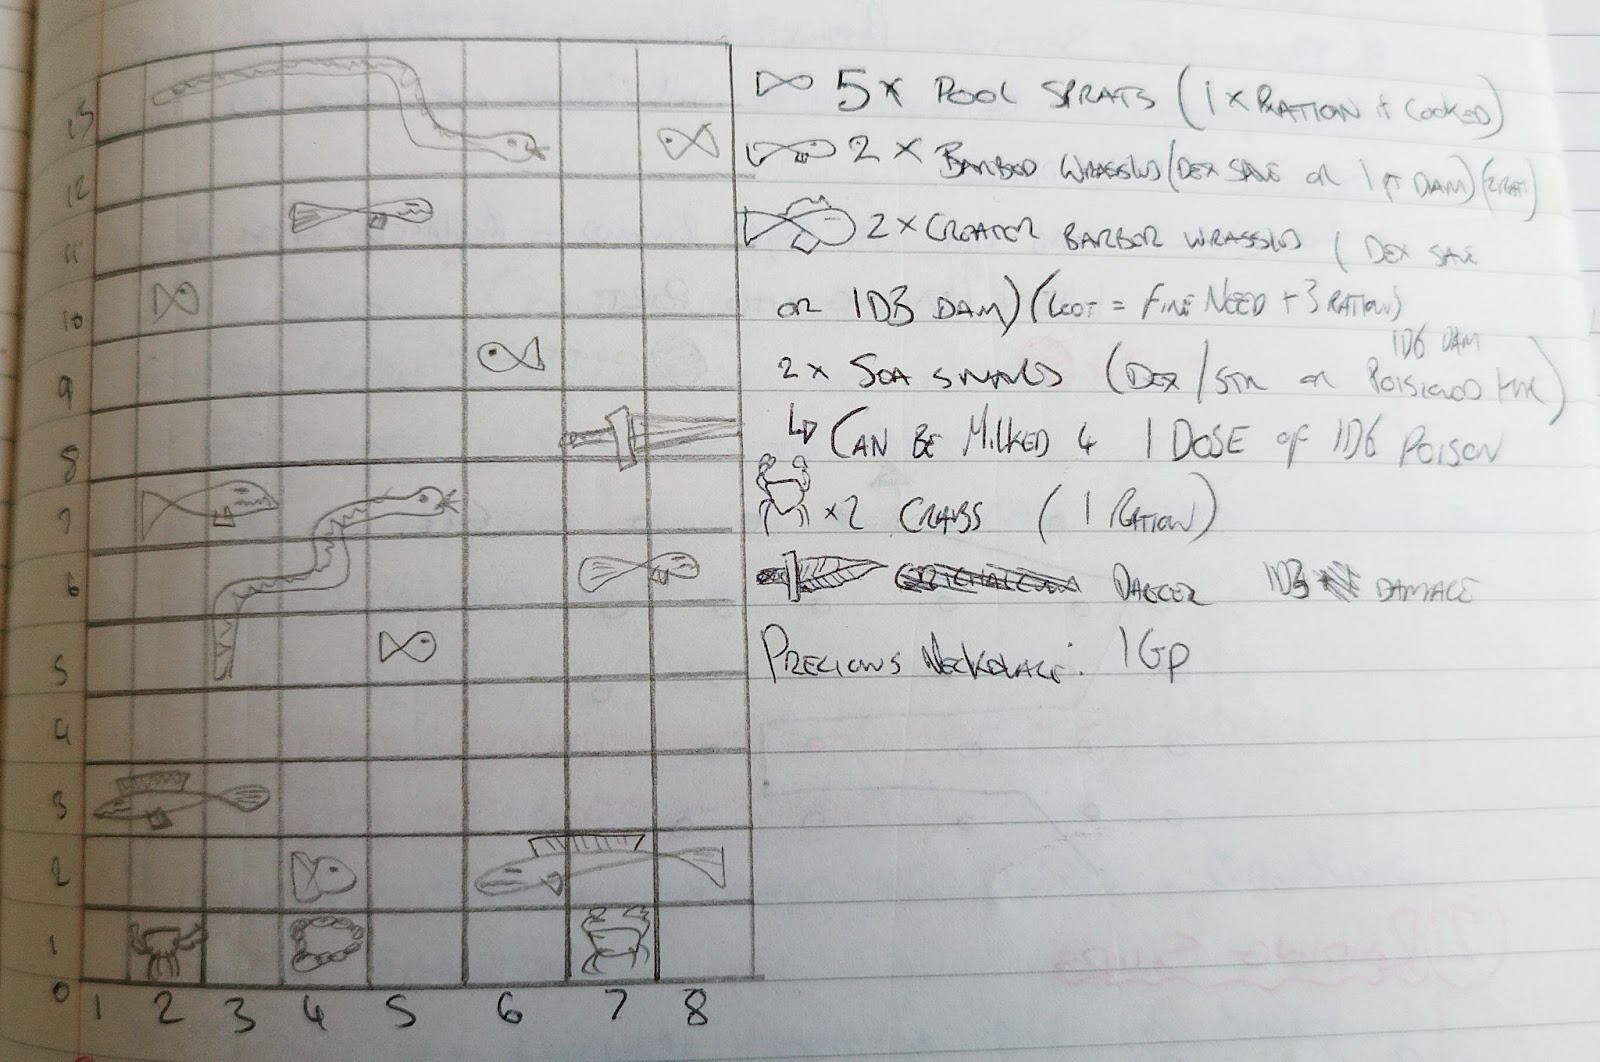 5x POOL SPRATS (1 x RATION if COOKED)
2 x BARBED WRASSES (DEX SAVE OR 1 pt DAM) (2 RAT)
2 x GREATER BARBED WRASSES (DEX SAVE
OR 1D3 DAM) (LOOT = FINE NEED + 3 RATION)
1D6 DAM
2 x SEA SNAKES (DEX/STR OR POISIONED
↳ CAN BE MILKED 4 1 DOSE OF 1D6 POISON
x2 CRABS (1 RATION)
DAGGER 1D3 DAMAGE
PRECIOUS NECKELACE: 1GP
13
12
11
10
9
8
7
6
5
4
3
2
1
0
1 2 3 4 5 6 7 8